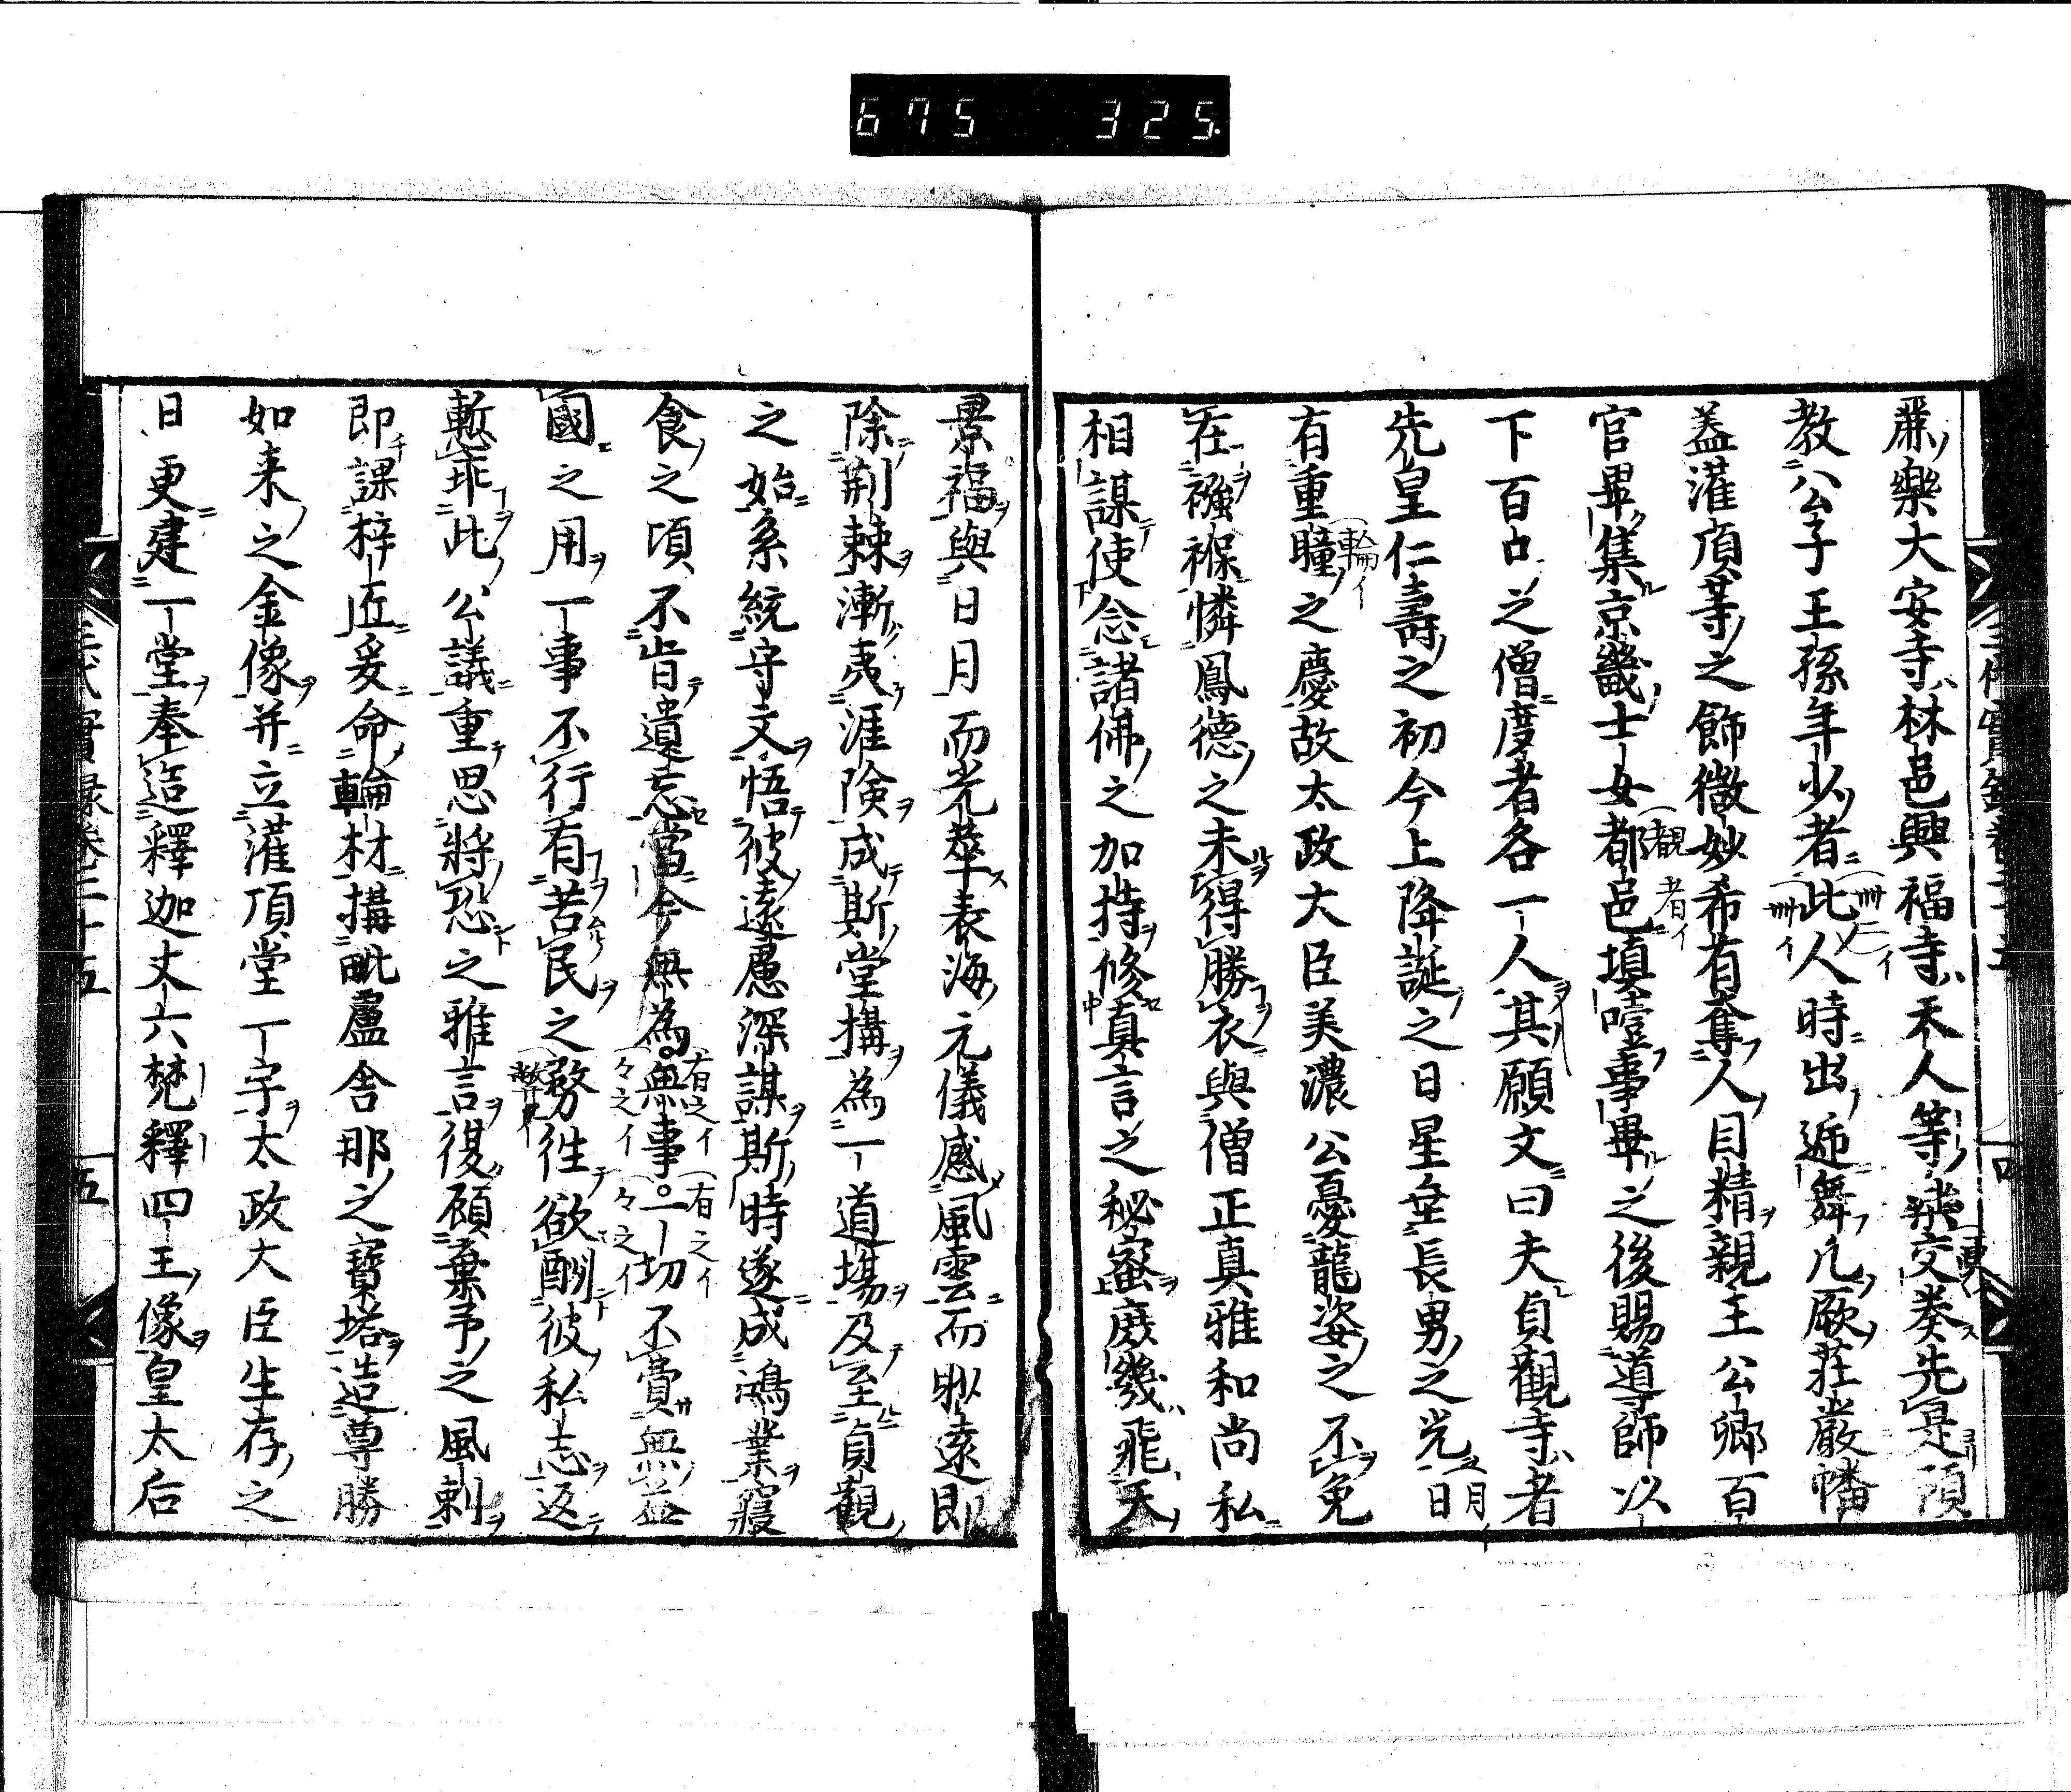 675 325
樂大安寺林邑興福寺天人等遞交奏先是預
教公子王孫年少者卌此人時出遞舞凡厥莊嚴幡
蓋灌頂等之飾微妙希有奪人目精親王公卿百
官畢集京畿士女都邑填噎事畢之後賜導師以
下百口之僧度者各一人其願文曰夫貞觀寺者
先皇仁壽之初今上降誕之日星垂長男之光
有重瞳之慶故太政大臣美濃公憂龍姿之不免
在襁褓憐鳳德之未得勝衣與僧正真雅和尚私
相謀使念諸佛之加持修真言之秘密庶幾飛天
景福與日月而光華表海元儀感風雲而眇遠即
除荊棘漸夷涯険成斯堂構為一道場及至貞觀
之始系統守文悟彼遠慮深謀斯時遂成鴻業寢
食之頃不肯遺忘當今無為無事一切不賞無益
國之用一事不行有苦民之務徃欲酬彼私志返
慙乖此公議重思將恐之雅言復顧棄予之風刺
即課梓匠爰命輪材搆毗盧舎那之寶塔造尊勝
如来之金像并立灌頂堂一宇太政大臣生存之
日更建一堂奉造釋迦丈六梵釋四王像皇太后
三代實録卷二十五
五